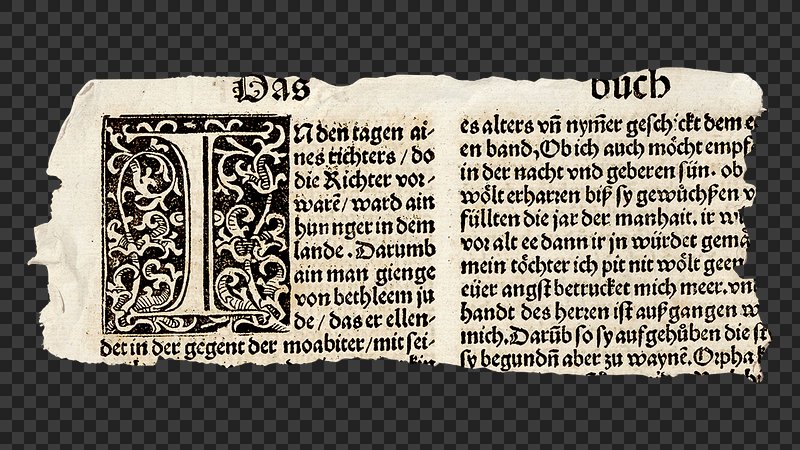 Das buch
IN den tagen ai-
nes richters / do
die Richter vor-
warẽ / ward ain
hunnger in dem
lande. Darumb
ain man gienge
von bethleem ju
de / das er ellen-
det in der gegent der moabiter / mit sei-
es alters vñ nym̃er gesch:ckt dem
en band, Ob ich auch mo̊cht empf
in der nacht vnd geberen sün. ob
wo̊lt erharren biß sy gewu̇chßen
füllten die jar der manhait. ir
vor alt ee dann ir jn würdet gemå
mein to̊chter ich pit nit wo̊lt geen
eüer angst betrucket mich meer. vn
handt des herren ist auß gangen w
mich. Darüb so sy aufgehůben die st
sy begundñ aber zu waynẽ. Orpha k